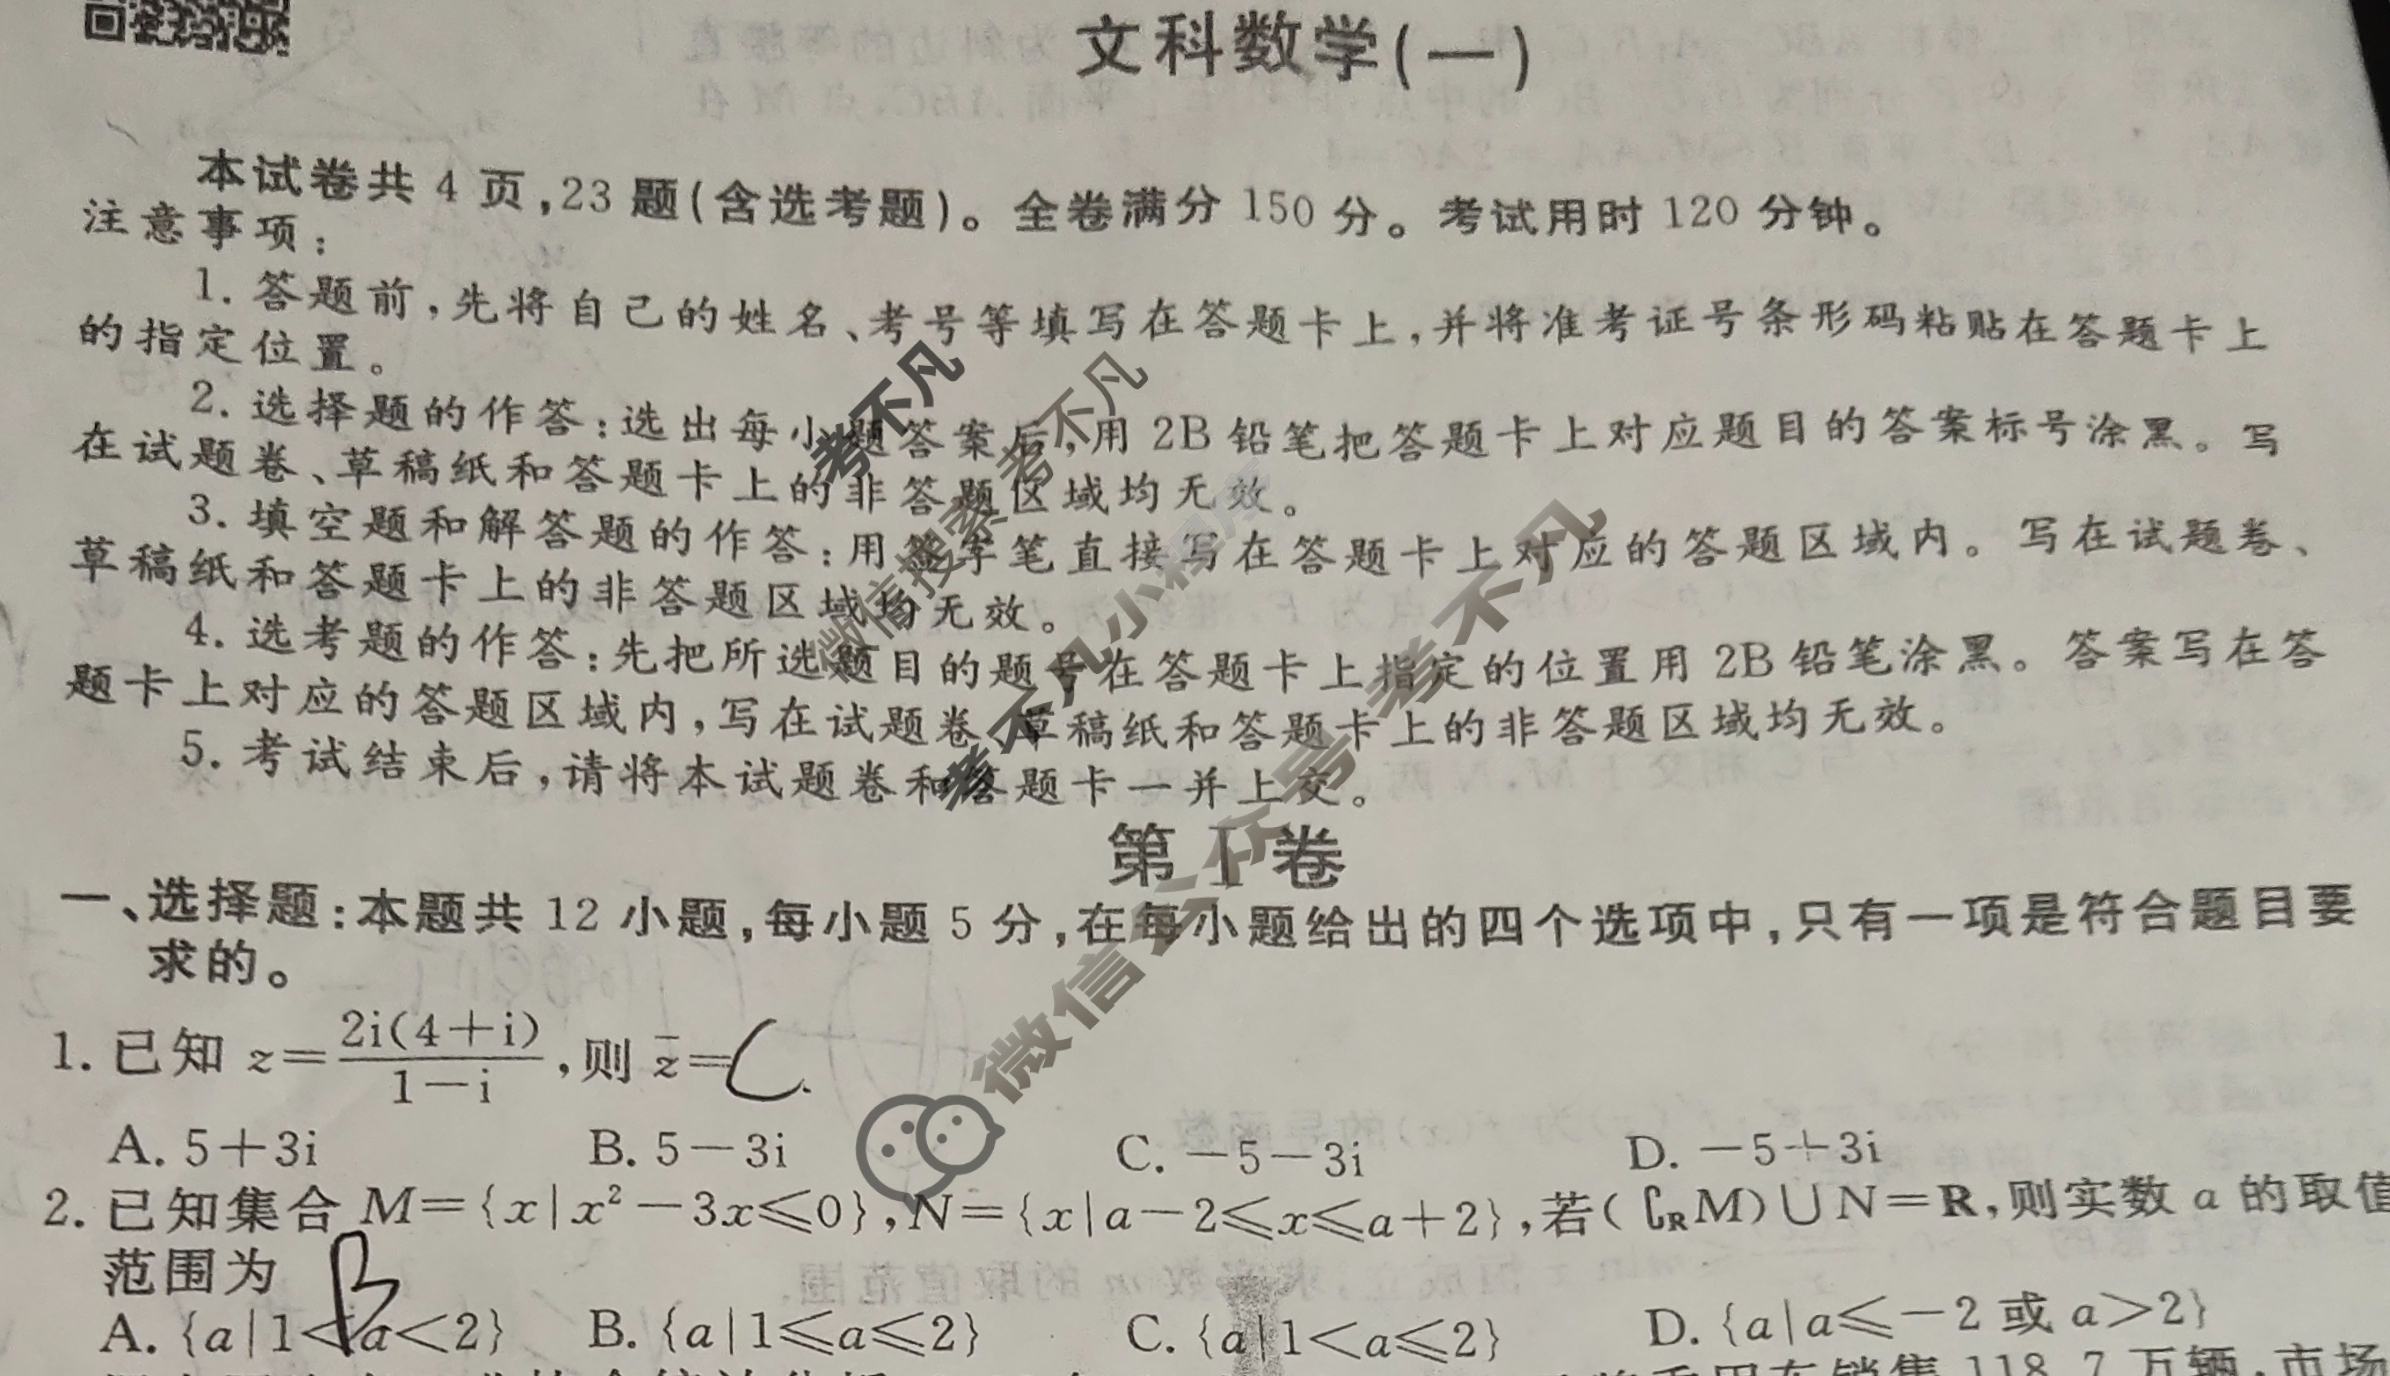 文科数学(一)
本试卷共 4 页,23 题(含选考题)。全卷满分 150 分。考试用时 120 分钟。
注意事项:
1. 答题前,先将自己的姓名、考号等填写在答题卡上,并将准考证号条形码粘贴在答题卡上
的指定位置。
2. 选择题的作答:选出每小题答案后,用 2B 铅笔把答题卡上对应题目的答案标号涂黑。写
在试题卷、草稿纸和答题卡上的非答题区域均无效。
3. 填空题和解答题的作答:用签字笔直接写在答题卡上对应的答题区域内。写在试题卷、
草稿纸和答题卡上的非答题区域均无效。
4. 选考题的作答:先把所选题目的题号在答题卡上指定的位置用 2B 铅笔涂黑。答案写在答
题卡上对应的答题区域内,写在试题卷、草稿纸和答题卡上的非答题区域均无效。
5. 考试结束后,请将本试题卷和答题卡一并上交。
考不凡
微信搜索 考不凡
考不凡小程序
微信公众号 考不凡
第 I 卷
一、选择题:本题共 12 小题,每小题 5 分,在每小题给出的四个选项中,只有一项是符合题目要
求的。
1. 已知 z=2i(4+i)/(1-i),则 z̄= C.
A. 5+3i B. 5-3i C. -5-3i D. -5+3i
2. 已知集合 M={x|x²-3x≤0},N={x|a-2≤x≤a+2},若(∁RM)∪N=R,则实数 a 的取值
范围为 B
A. {a|1<a<2} B. {a|1≤a≤2} C. {a|1<a≤2} D. {a|a≤-2 或 a>2}
销售 118.7 万辆,市场